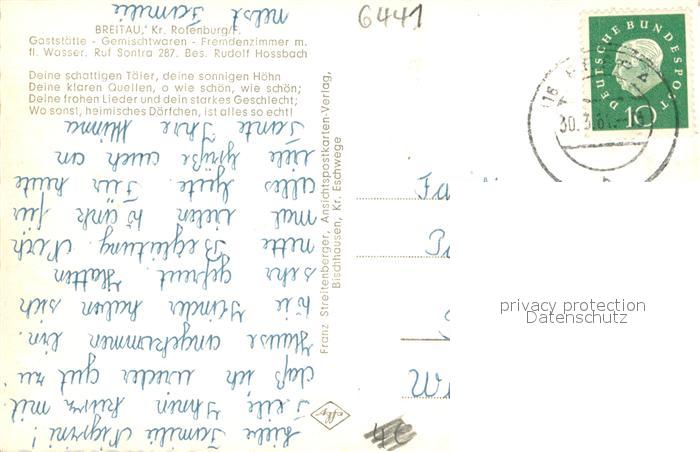 6441
BREITAU, Kr. Rotenburg/F.
Gaststätte - Gemischtwaren - Fremdenzimmer m.
fl. Wasser. Ruf Sontra 287. Bes. Rudolf Hossbach
Deine schattigen Täler, deine sonnigen Höhn
Deine klaren Quellen, o wie schön, wie schön;
Deine frohen Lieder und dein starkes Geschlecht;
Wo sonst, heimisches Dörfchen, ist alles so echt!
Franz Streitenberger, Ansichtspostkarten-Verlag,
Bischhausen, Kr. Eschwege
DEUTSCHE BUNDESPOST
10
30.3.61
Liebe Familie
Teile Ihnen kurz mit,
daß ich wieder gut zu
Hause angekommen bin.
Die Kinder haben sich
sehr gefreut. Hatten
nette Begleitung. Noch
mal vielen Dank für
alles Gute. Für heute
viele Grüße auch an
Tante Ihre Minna
nebst Familie
privacy protection
Datenschutz